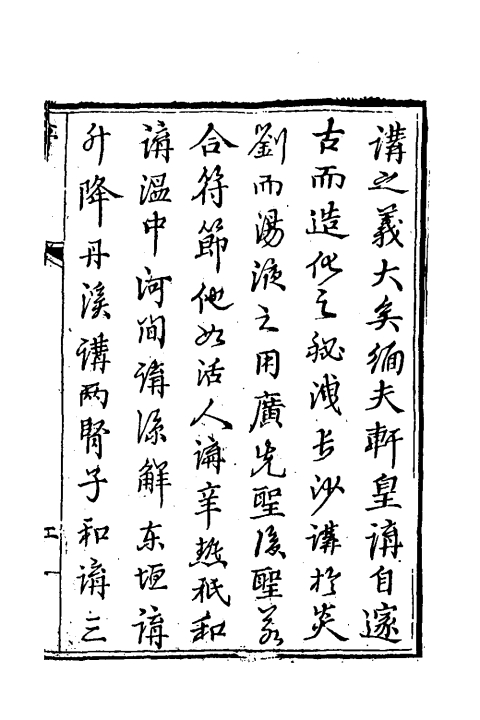 講之義大矣緬夫軒皇講自邃
古而造化之秘洩長沙講於炎
劉而湯液之用廣先聖後聖若
合符節他如活人講辛熱祇和
講溫中河間講涼解东垣講
升降丹溪講两腎子和講三